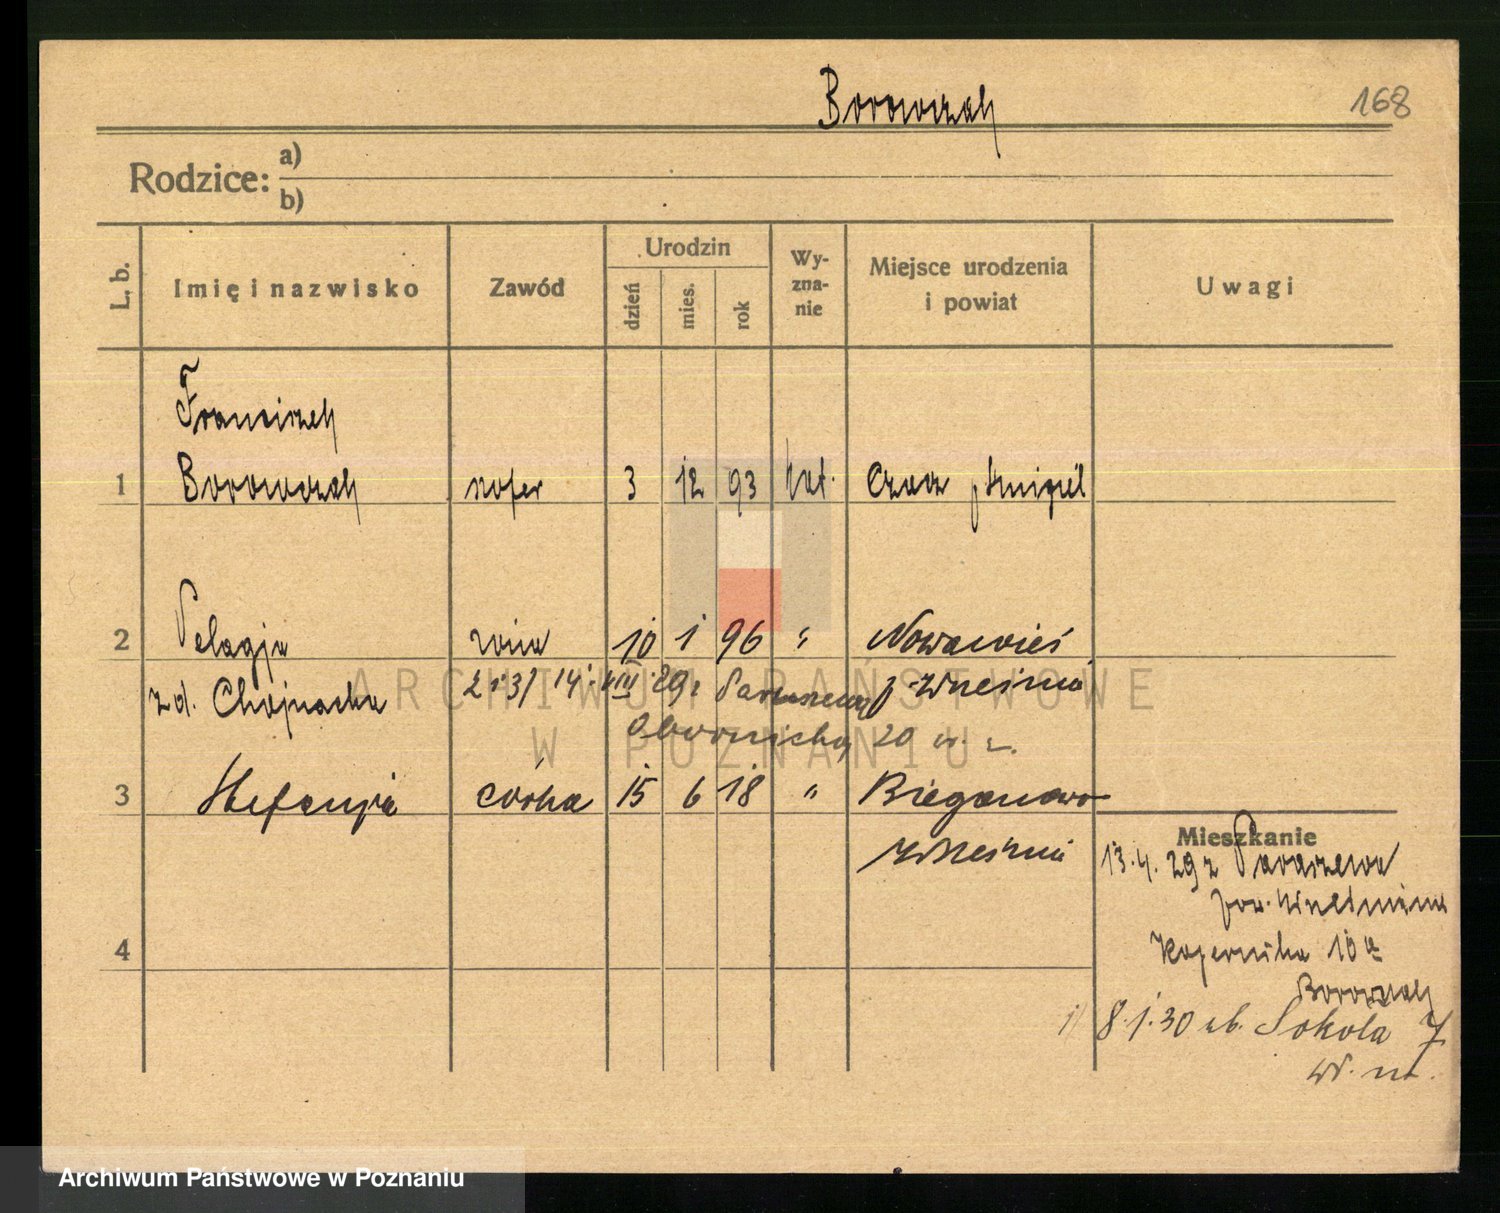 Borowczak
168
Rodzice: a)
b)
L. b.
Imię i nazwisko
Zawód
Urodzin
dzień
mies.
rok
Wy-
zna-
nie
Miejsce urodzenia
i powiat
Uwagi
Franciszek
1 Borowczak szofer 3 12 93 kat. Czacz p Śmigiel
2 Pelagja żona 10 1 96 " Nowawieś
zd. Chojnacka 2 i 3/ 14. VIII. 29 z p Września
Obornicka 20
3 Stefanja córka 15 6 18 " Bieganowo
Września
Mieszkanie
13.4.29 z
pow.
4
Kopernika 10a
Borowczak
1/ 8.1.30 Sokoła 7
w. m.
ARCHIWUM PAŃSTWOWE
W POZNANIU
Archiwum Państwowe w Poznaniu